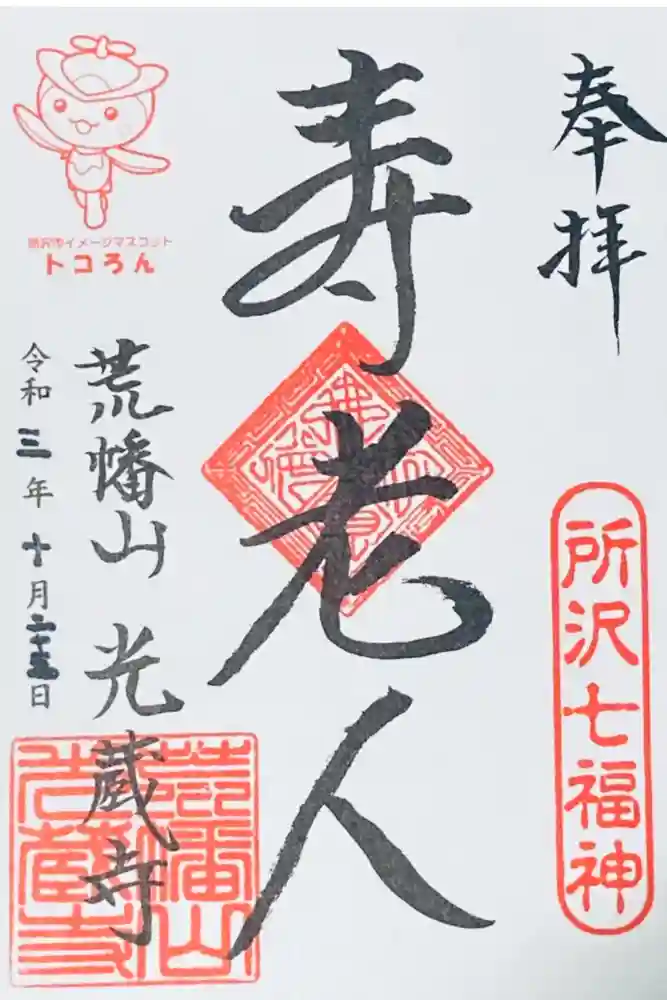 奉拝
所沢七福神
寿老人
所沢市イメージマスコット
トコろん
荒幡山 光蔵寺
令和三年十月二十五日
荒幡山
光蔵寺